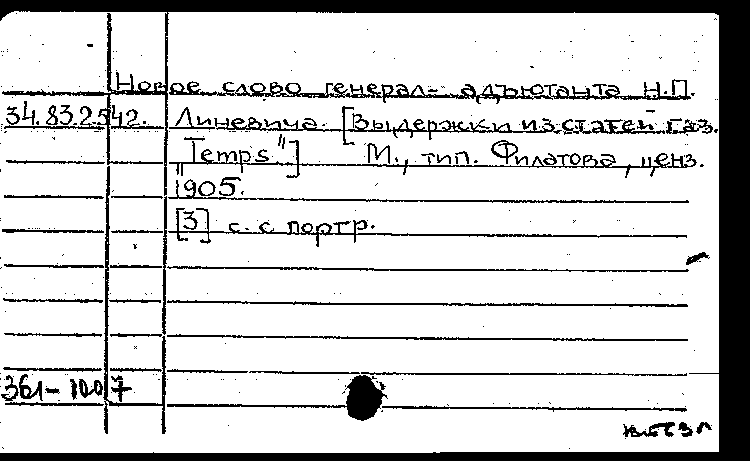 Новое слово генерал-адъютанта Н.П.
34.83.2.542. Линевича. [Выдержки из статей газ.
"Temps"] М., тип. Филатова, ценз.
1905.
[3] с. с портр.
361-100 7